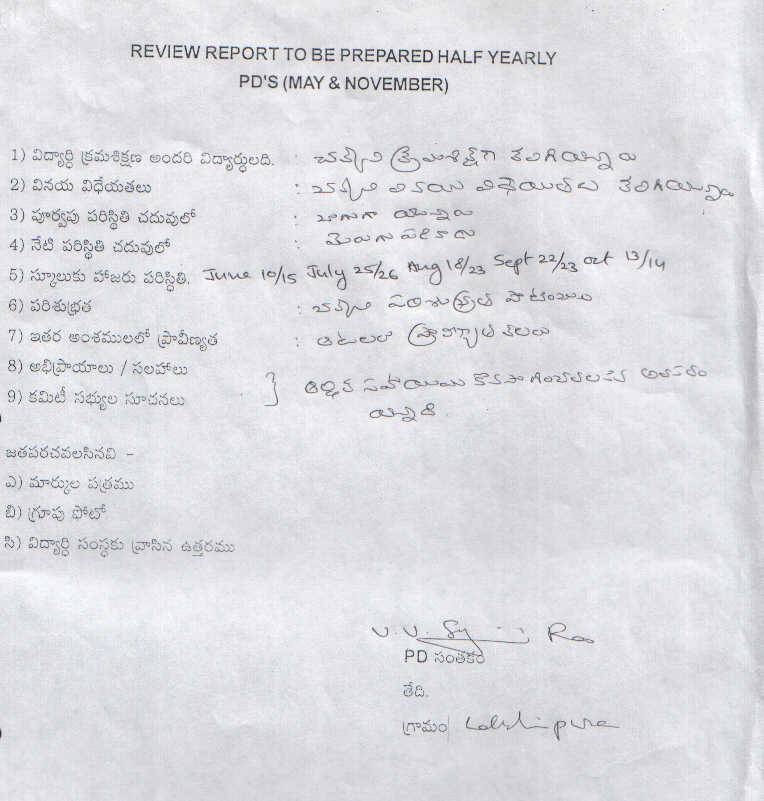 REVIEW REPORT TO BE PREPARED HALF YEARLY
PD'S (MAY & NOVEMBER)
1) విద్యార్ధి క్రమశిక్షణ అందరి విద్యార్ధులది. : చక్కని క్రమశిక్షణ కలిగియున్నారు
2) వినయ విధేయతలు : చక్కని వినయ విధేయతలు కలిగియున్నారు
3) పూర్వపు పరిస్థితి చదువులో : బాగుగా యున్నారు
4) నేటి పరిస్థితి చదువులో :
5) స్కూలుకు హాజరు పరిస్థితి. June 10/15 July 25/26 Aug 18/23 Sept 22/23 oct 13/14
6) పరిశుభ్రత : చక్కని పరిశుభ్రత
7) ఇతర అంశములలో ప్రావీణ్యత : ఆటలలో ప్రావీణ్యత కలదు
8) అభిప్రాయాలు / సలహాలు
9) కమిటీ సభ్యుల సూచనలు } ఆర్థిక సహాయము కొనసాగించవలసిన అవసరం
యున్నది.
జతపరచవలసినవి -
ఎ) మార్కుల పత్రము
బి) గ్రూపు ఫోటో
సి) విద్యార్ధి సంస్థకు వ్రాసిన ఉత్తరము
V. V. Rao
PD సంతకం
తేది.
గ్రామం Lakshmipura